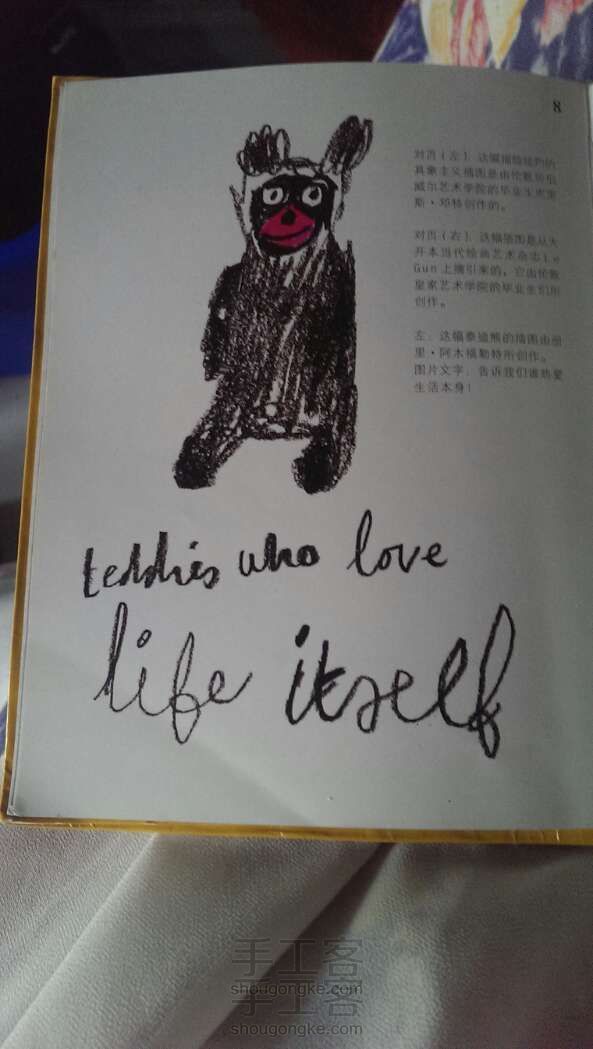 8
对页（左）：这幅描绘纽约的
具象主义插图是由伦敦坎伯
威尔艺术学院的毕业生夹里
斯·邓特创作的。
对页（右）：这幅插图是从大
开本当代绘画艺术杂志Le
Gun上摘引来的，它由伦敦
皇家艺术学院的毕业生们所
创作。
左：这幅泰迪熊的插图由丽
里·阿木福勒特所创作。
图片文字：告诉我们谁热爱
生活本身！
teddies who love
life itself
手工客
shougongke.com
手工客
shougongke.com